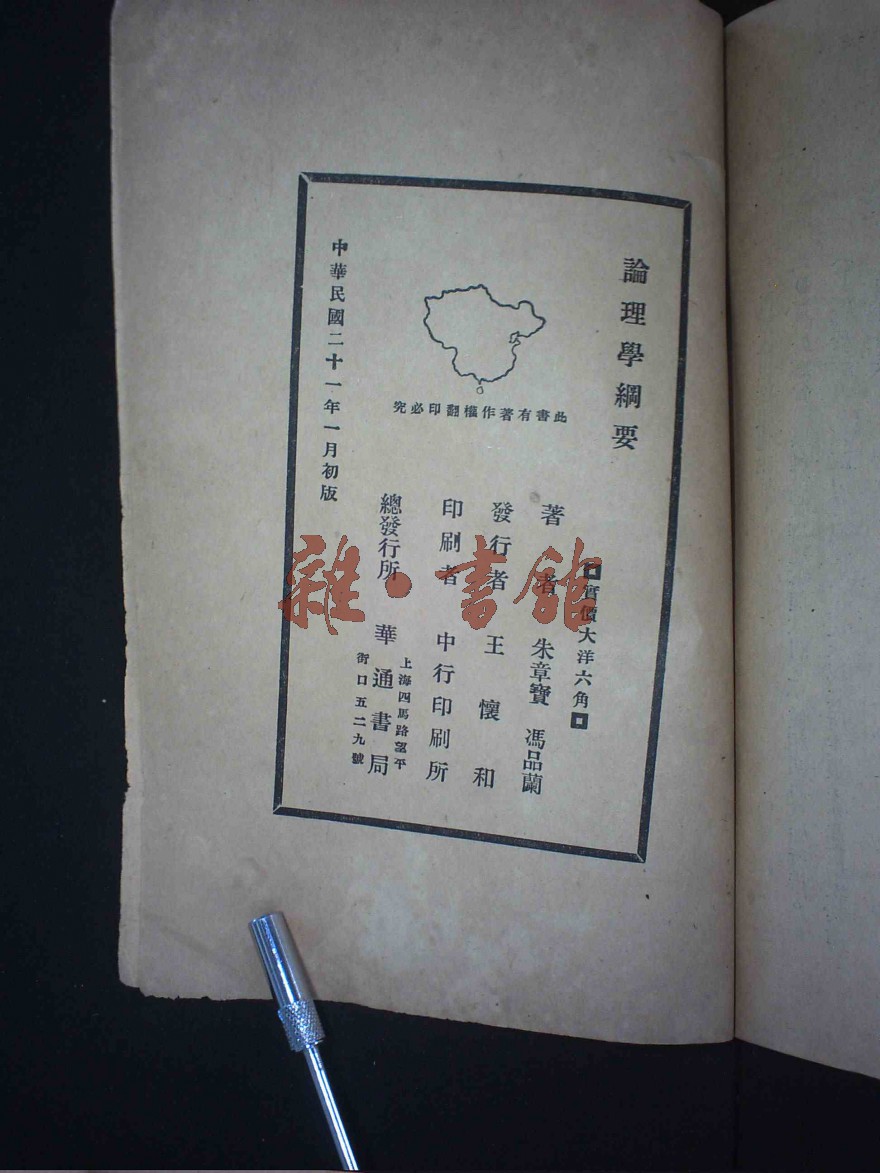 論理學綱要
實價大洋六角
著者 朱章寶 馮品蘭
發行者 王懷和
印刷者 中行印刷所
總發行所 華通書局
上海四馬路望平
街口五二九號
此書有著作權翻印必究
中華民國二十一年一月初版
雜·書館